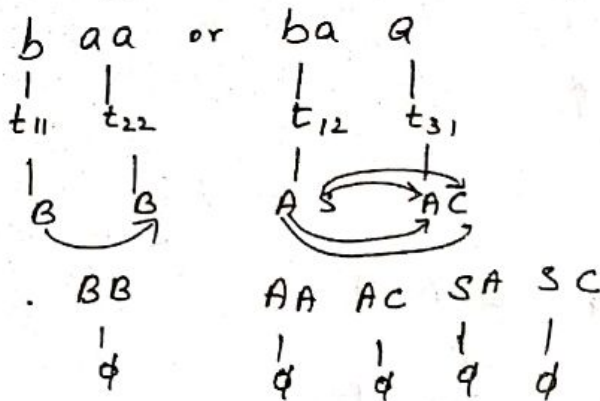 b aa or ba a
t11 t22 t12 t31
B B A S A C
. BB AA AC SA SC
ϕ ϕ ϕ ϕ ϕ